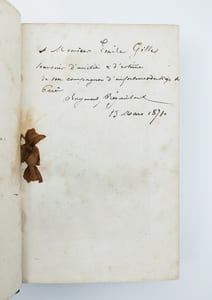 a Monsieur Emile Gilles
souvenir d'amitié & d'estime
de son compagnon d'infortune du siège de
Paris
13 Mars 1871.